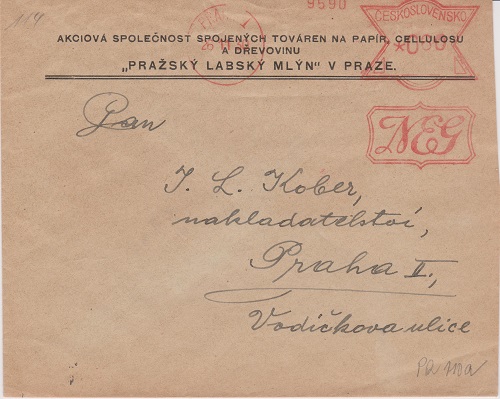 164
9590
ČESKOSLOVENSKO
*050
AKCIOVÁ SPOLEČNOST SPOJENÝCH TOVÁREN NA PAPÍR, CELLULOSU
A DŘEVOVINU
„PRAŽSKÝ LABSKÝ MLÝN" V PRAZE.
NEG
Pan
I. L. Kober,
nakladatelství,
Praha II.,
Vodičkova ulice